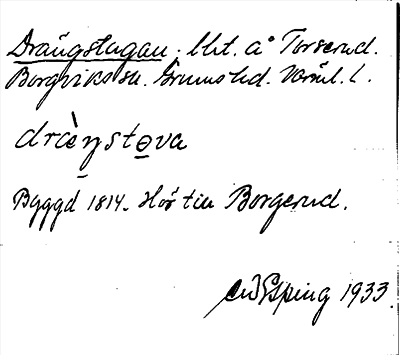 Drängstugan. bbt. å Torserud.
Borgviks sn. Grums hd. Värml. l.
dræ̀ŋstɵva
Byggd 1814. Hör till Borgerud.
CWEsping 1933.